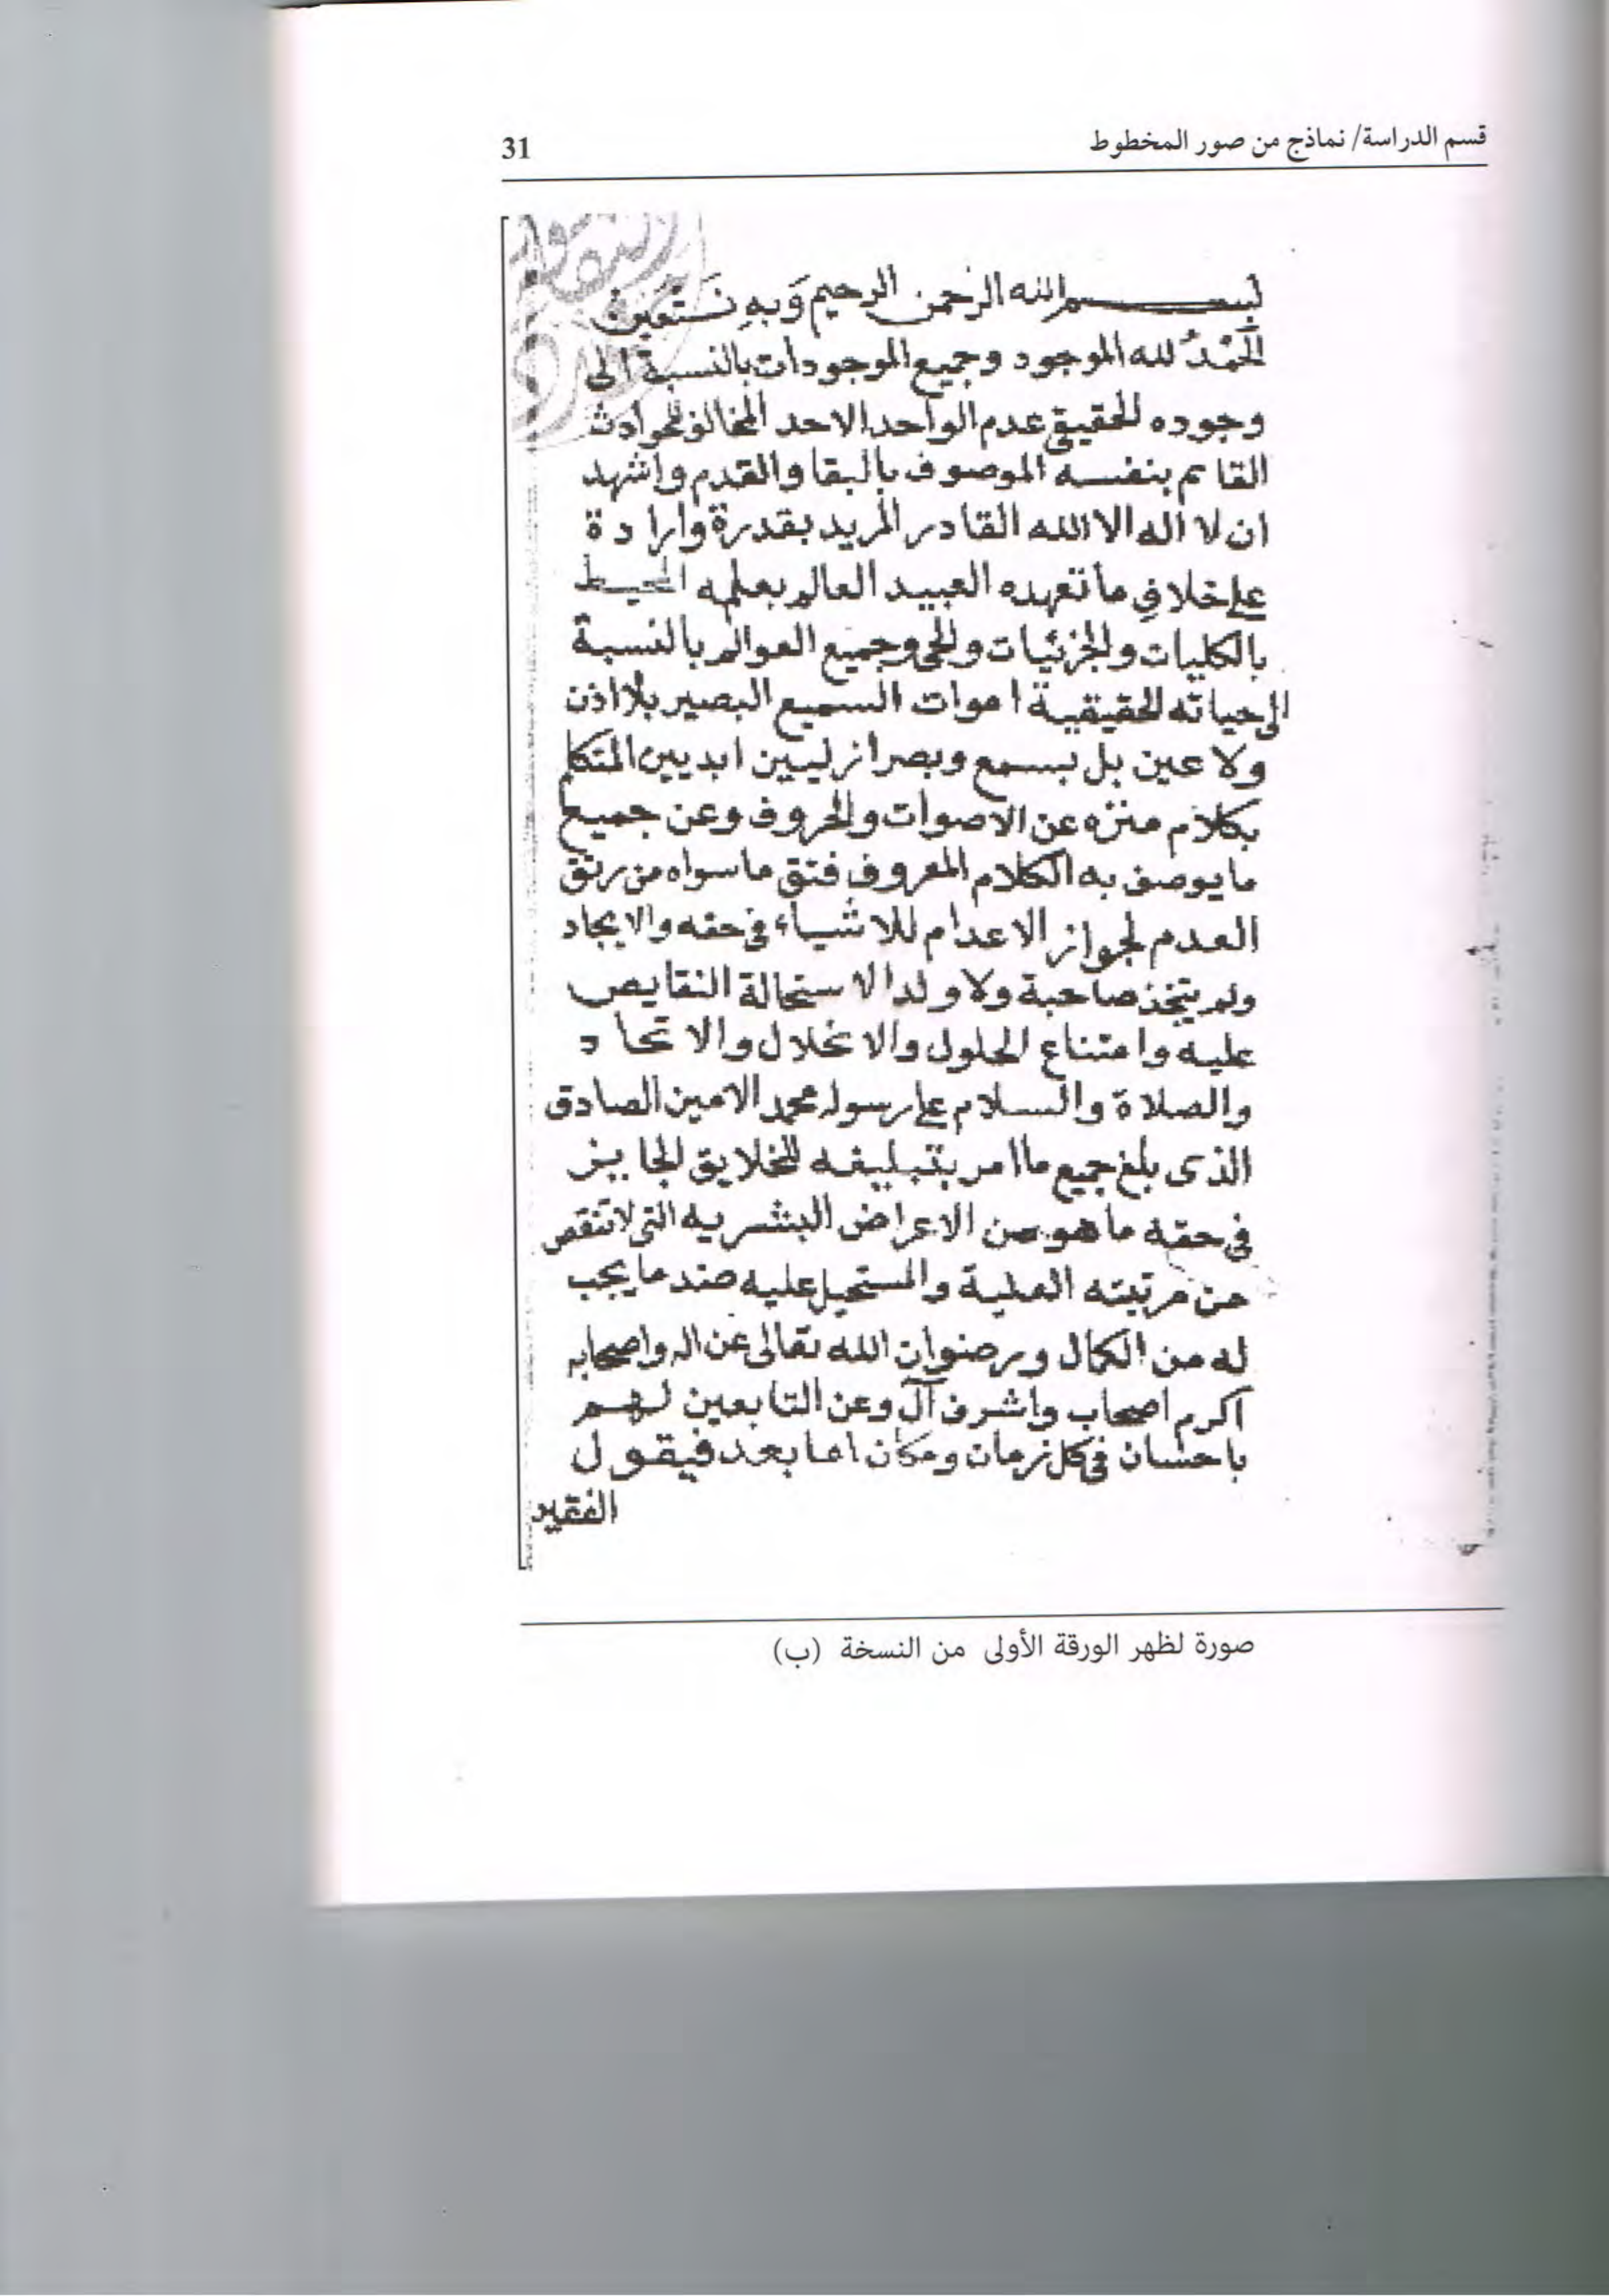 قسم الدراسة/ نماذج من صور المخطوط
31
بسم الله الرحمن الرحيم وَبِهِ نَسْتَعِينُ
الْحَمْدُ لله الموجود وجميع الموجودات بالنسبة الى
وجوده الحقيقي عدم الواحد الاحد المخالف للحوادث
القايم بنفسه الموصوف بالبقا والقدم واشهد
ان لا اله الا الله القادر المريد بقدرة وارادة
على خلافِ ما تعهده العبيد العالم بعلمه المحيط
بالكليات والجزئيات والحي وجميع العوالم بالنسبة
الى حياته الحقيقية اموات السميع البصير بلا اذن
ولا عين بل بسمع وبصر ازليين ابديين المتكلم
بكلام منزه عن الاصوات والحروف وعن جميع
ما يوصف به الكلام المعروف فتق ما سواه من رتق
العدم لجواز الاعدام للاشياء في حقه والايجاد
ولم يتخذ صاحبة ولا ولدا لاستحالة النقايص
عليه وامتناع الحلول والانحلال والاتحاد
والصلاة والسلام على رسوله محمد الامين الصادق
الذى بلغ جميع ما امر بتبليغه للخلايق الجايز
في حقه ما هو من الاعراض البشريه التى لا تنقص
من مرتبته العلية والمستحيل عليه ضد ما يجب
له من الكمال ورضوان الله تعالى عن اله واصحابه
اكرم اصحاب واشرف آل وعن التابعين لهم
باحسان في كل زمان ومكان اما بعد فيقول
الفقير
صورة لظهر الورقة الأولى من النسخة (ب)